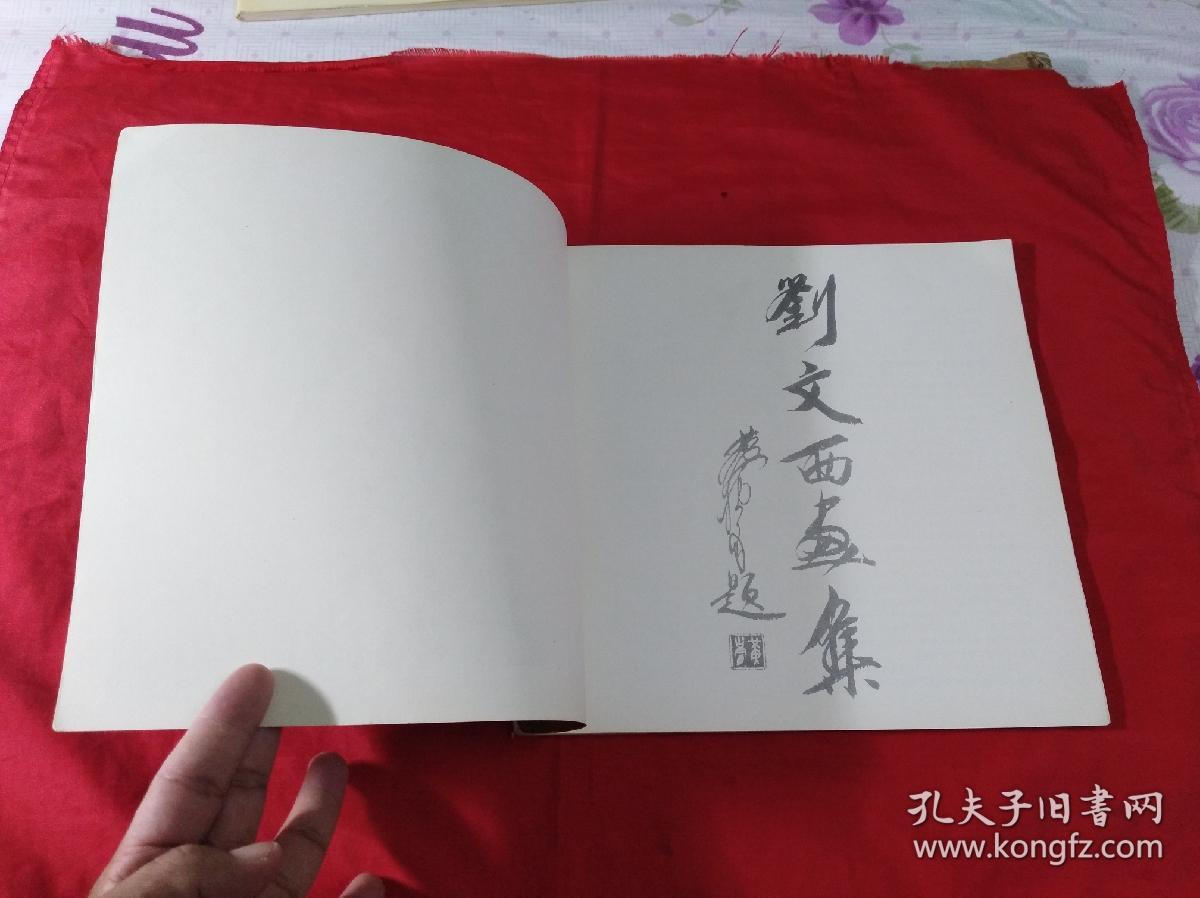 劉文西畫集
黄胄題
孔夫子旧书网
www.kongfz.com